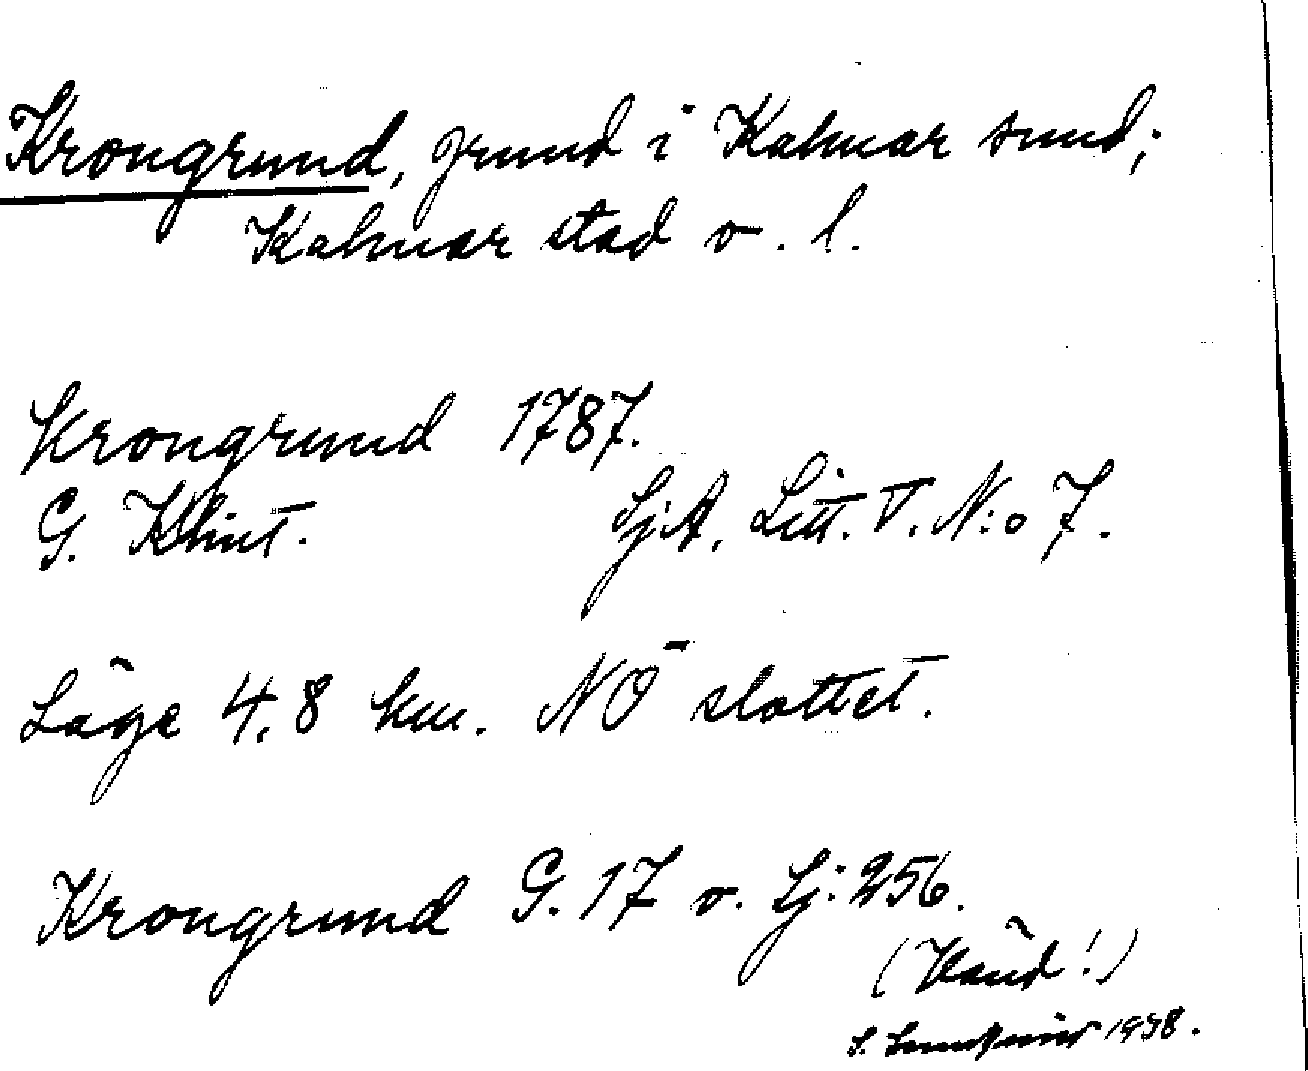 Krongrund, grund i Kalmar sund;
Kalmar stad o. l.
Krongrund 1787.
G. Klint. SjA. Litt. V. N:o 7.
Läge 4,8 km. NO slottet.
Krongrund G. 17 o. Sj: 256.
(Vänd!)
S. 1938.